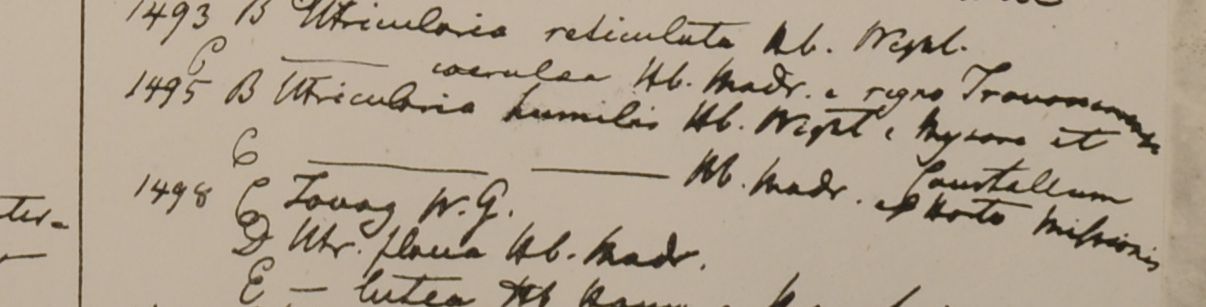 1493 B Utricularia reticulata Hb. Wight.
C ——— coerulea Hb. Madr. e regno Travancorensi
1495 B Utricularia humilis Hb. Wight e Mysore et Courtallum
C ——— ——— Hb. Madr. et Horto Missionis
1498 C Tovag W.G.
D Utr. flava Hb. Madr.
E — lutea Hb